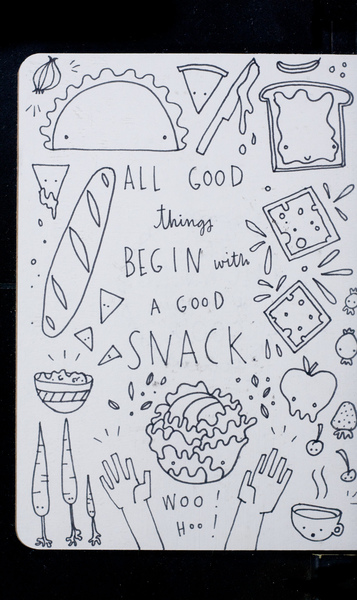 ALL GOOD
things
BEGIN with
A GOOD
SNACK.
WOO!
Hoo!